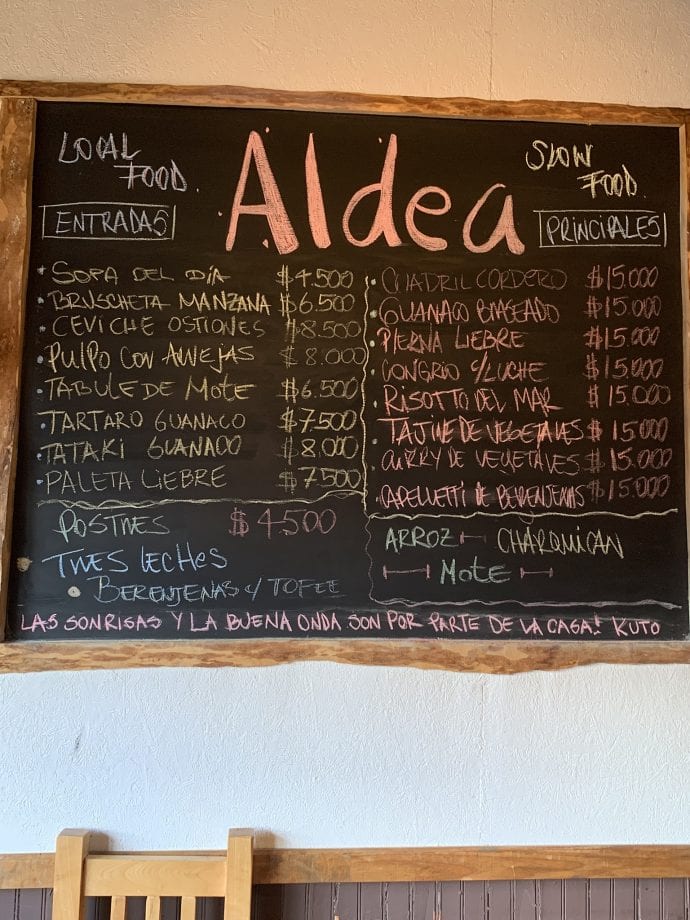 LOCAL FOOD.
Aldea
SLOW FOOD.
ENTRADAS
• SOPA DEL DÍA $4.500
• BRUSCHETA MANZANA $6.500
• CEVICHE OSTIONES $8.500
• PULPO CON ALMEJAS $8.000
• TABULE DE MOTE $6.500
• TARTARO GUANACO $7.500
• TATAKI GUANACO $8.000
• PALETA LIEBRE $7.500
POSTRES $4.500
TRES LECHES
• BERENJENAS C/ TOFEE
PRINCIPALES
• CUADRIL CORDERO $15.000
• GUANACO BRASEADO $15.000
• PIERNA LIEBRE $15.000
• CONGRIO C/LUCHE $15.000
• RISOTTO DEL MAR $15.000
• TAJINE DE VEGETALES $15.000
• CURRY DE VEGETALES $15.000
• CAPELLETTI DE BERENJENAS $15.000
ARROZ CHARQUICAN
MOTE
LAS SONRISAS Y LA BUENA ONDA SON POR PARTE DE LA CASA! KUTO